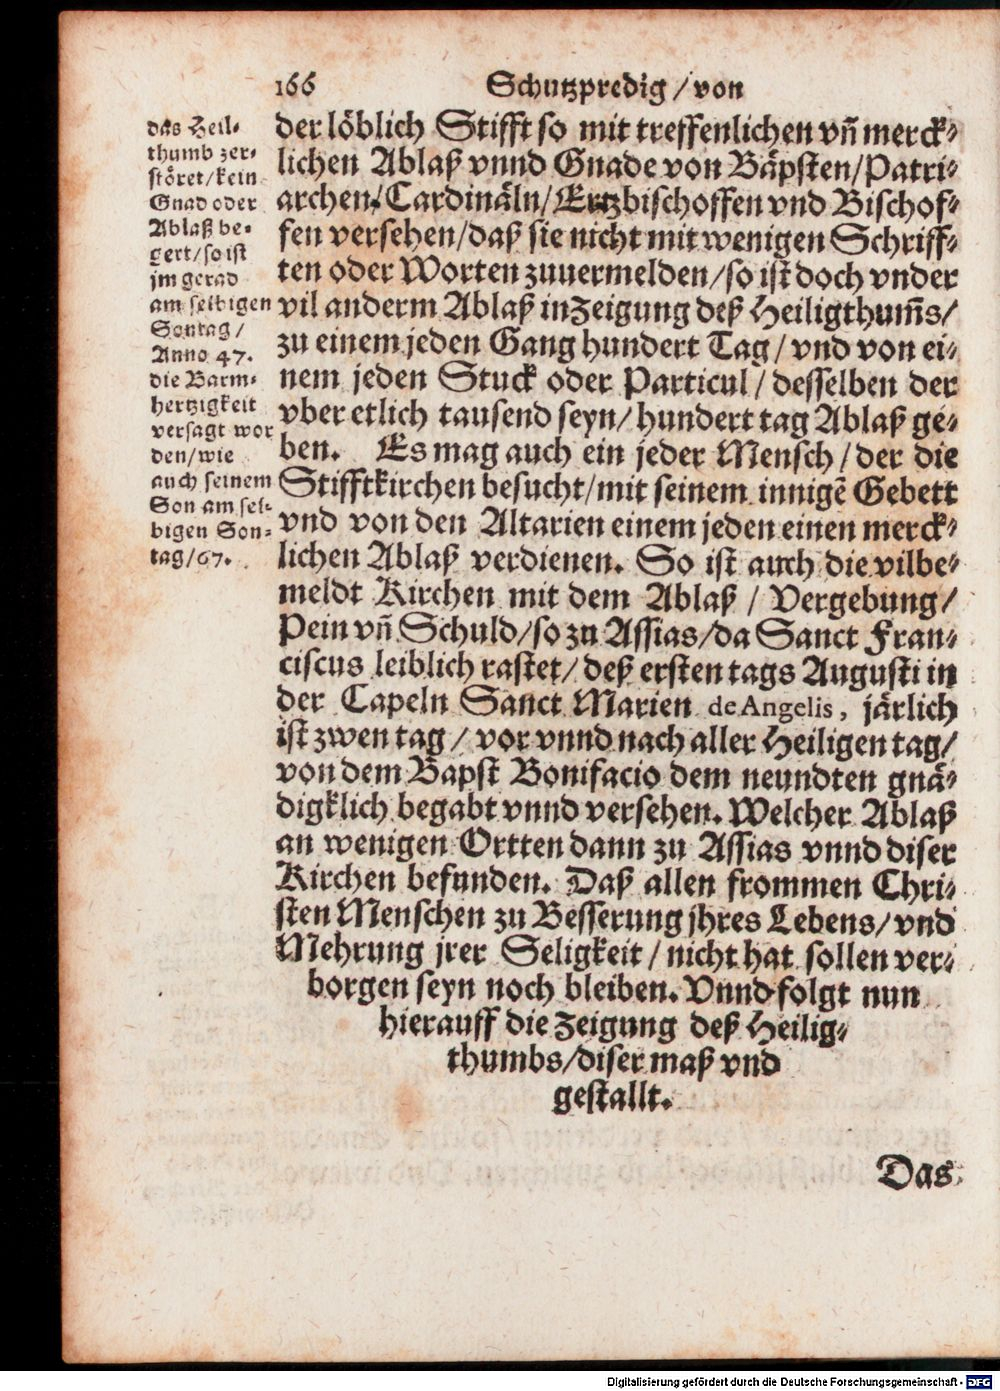 166 Schutzpredig / von
das Heil⸗
thumb zer⸗
störet / kein
Gnad oder
Ablaß be⸗
gert / so ist
jm gerad
am selbigen
Sontag /
Anno 47.
die Barm⸗
hertzigkeit
versagt wor
den / wie
auch seinem
Son am sel⸗
bigen Son⸗
tag / 67.
der löblich Stifft so mit treffenlichen vñ merck⸗
lichen Ablaß vnnd Gnade von Bäpsten / Patri⸗
archen / Cardinäln / Ertzbischoffen vnd Bischof⸗
fen versehen / daß sie nicht mit wenigen Schriff⸗
ten oder Worten zuuermelden / so ist doch vnder
vil anderm Ablaß in Zeigung deß Heiligthum̃s /
zu einem jeden Gang hundert Tag / vnd von ei⸗
nem jeden Stuck oder Particul / desselben der
vber etlich tausend seyn / hundert tag Ablaß ge⸗
ben. Es mag auch ein jeder Mensch / der die
Stifftkirchen besucht / mit seinem innigẽ Gebett
vnd von den Altarien einem jeden einen merck⸗
lichen Ablaß verdienen. So ist auch die vilbe⸗
meldt Kirchen mit dem Ablaß / Vergebung /
Pein vñ Schuld / so zu Assias / da Sanct Fran⸗
ciscus leiblich rastet / deß ersten tags Augusti in
der Capeln Sanct Marien de Angelis, järlich
ist zwen tag / vor vnnd nach aller Heiligen tag /
von dem Bapst Bonifacio dem neundten gnä⸗
digklich begabt vnnd versehen. Welcher Ablaß
an wenigen Ortten dann zu Assias vnnd diser
Kirchen befunden. Daß allen frommen Chri⸗
sten Menschen zu Besserung jhres Lebens / vnd
Mehrung jrer Seligkeit / nicht hat sollen ver⸗
borgen seyn noch bleiben. Vnnd folgt nun
hierauff die Zeigung deß Heilig⸗
thumbs / diser maß vnd
gestallt.
Das
Digitalisierung gefördert durch die Deutsche Forschungsgemeinschaft - DFG